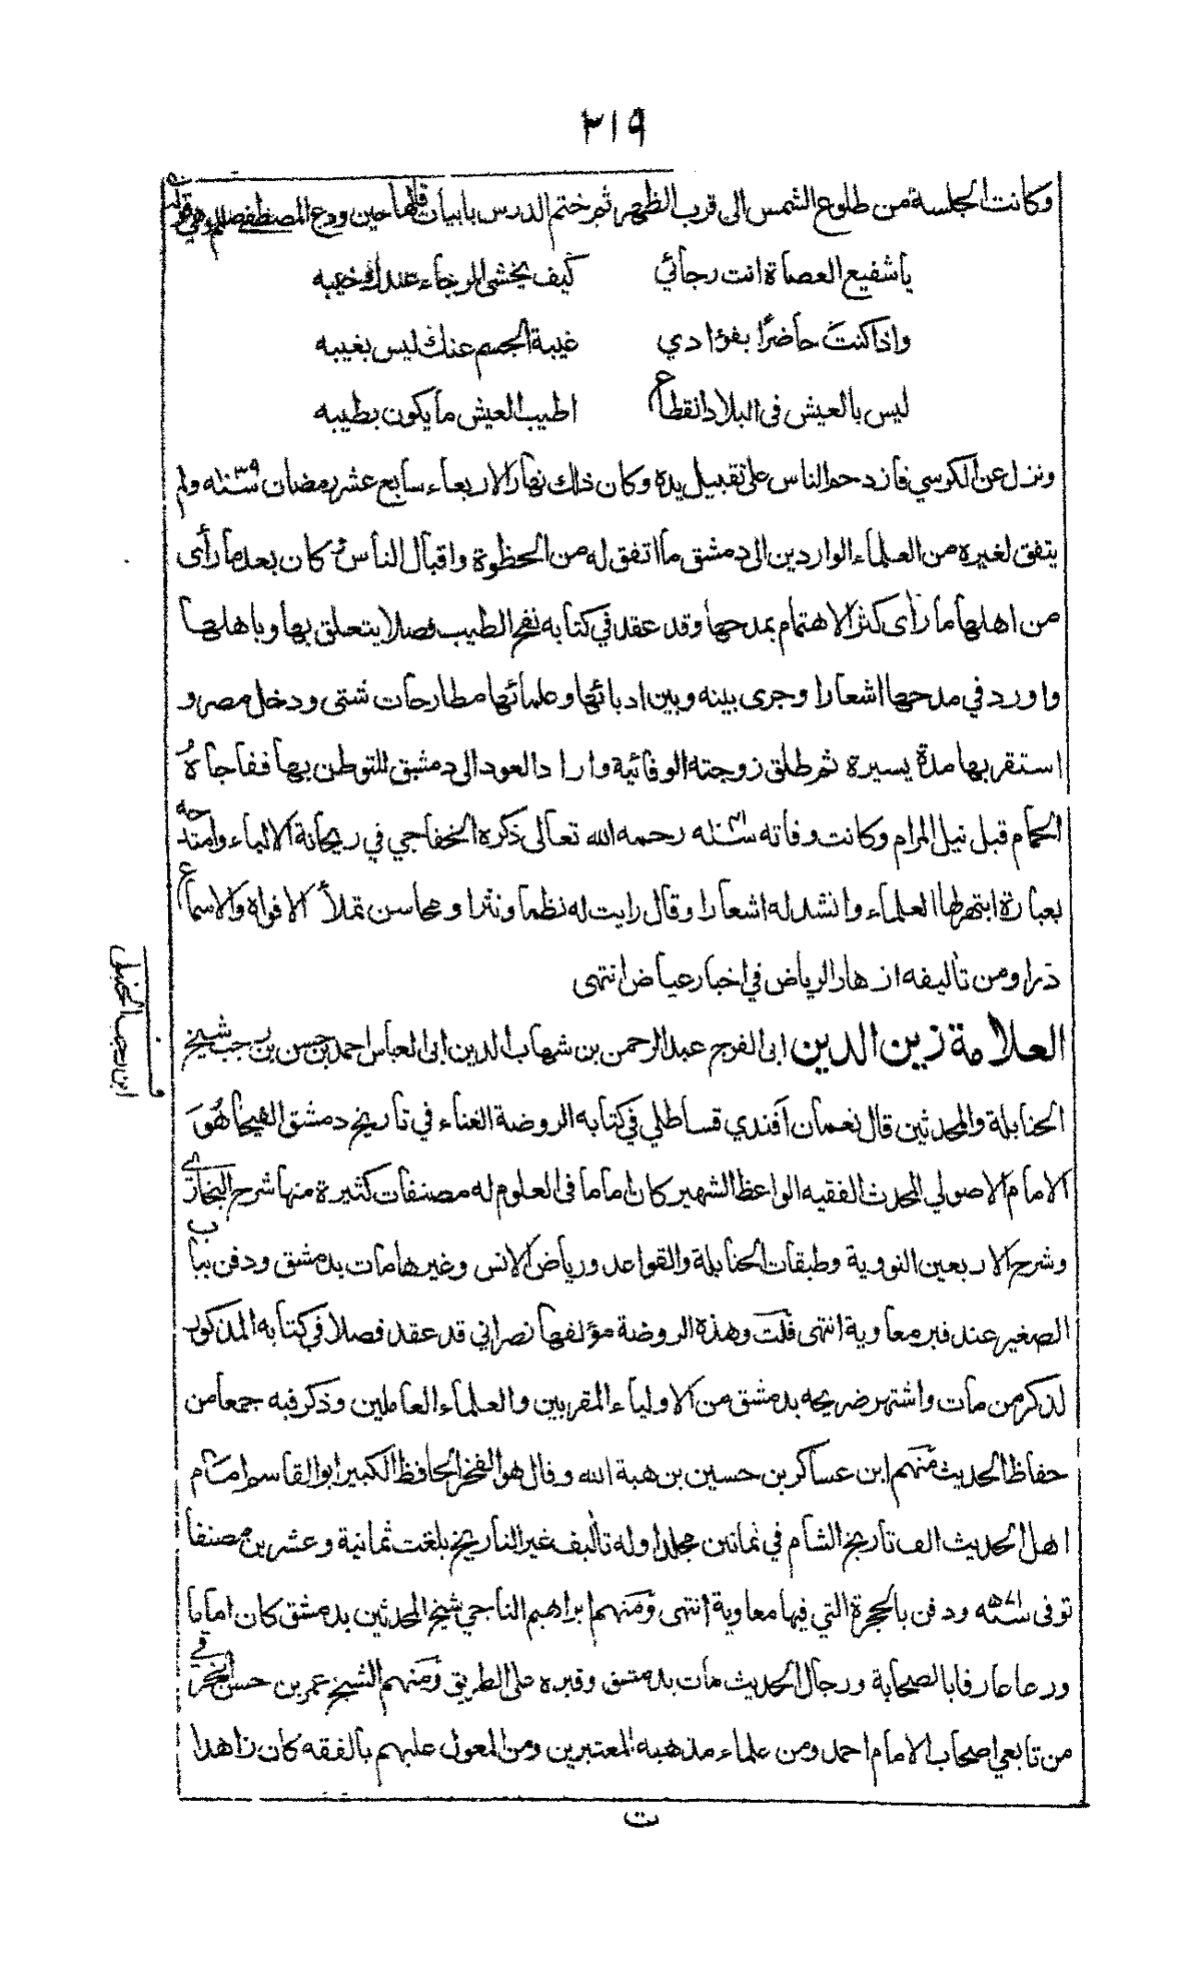 ٣١٩
وكانت الجلسة من طلوع الشمس الى قرب الظهر ثم ختم الدرس بابيات قالها حين ودع المصطفى صلم وهي قوله
ياشفيع العصاة انت رجائي كيف يخشى الرجاء عندك خيبه
واذا كنتَ حاضرًا بفؤادي غيبة الجسم عنك ليس بغيبه
ليس بالعيش في البلاد انقطاع اطيب العيش ما يكون بطيبه
ونزل عن الكرسي فازدحم الناس على تقبيل يده وكان ذلك نهار الاربعاء سابع عشر رمضان سنه ولم
يتفق لغيره من العلماء الواردين الى دمشق ما اتفق له من الحظوة واقبال الناس ثم كان بعد ما رأى
من اهلها ما رأى كثر الاهتمام بمدحها وقد عقد في كتابه نفح الطيب فصلا يتعلق بها وباهلها
واورد في مدحها اشعارا وجرى بينه وبين ادبائها وعلمائها مطارحات شتى ودخل مصر و
استقر بها مدة يسيرة ثم طلق زوجته الوفائية واراد العود الى دمشق للتوطن بها ففاجاهُ
الحمام قبل نيل المرام وكانت وفاته سنه رحمه الله تعالى ذكره الخفاجي في ريحانة الالباء وامتدحه
بعبارة ابتهر لها العلماء وانشد له اشعارا وقال رايت له نظما ونثرا ومحاسن تملأ الافواه والاسماع
درا ومن تأليفه ازهار الرياض في اخبار عياض انتهى
العلامة زين الدين ابى الفرج عبد الرحمن بن شهاب الدين ابى العباس احمد بن حسن بن رجب شيخ
ابن رجب الحنبلى
الحنابلة والمحدثين قال نعمان آفندي قساطلي في كتابه الروضة الغناء في تاريخ دمشق الفيحا هُوَ
الامام الاصولي المحدث الفقيه الواعظ الشهير كان اماما فى العلوم له مصنفات كثيرة منها شرح البخارى
وشرح الاربعين النووية وطبقات الحنابلة والقواعد ورياض الانس وغيرها مات بدمشق ودفن بباب
الصغير عند قبر معاوية انتهى قلت وهذه الروضة مؤلفها نصراني قد عقد فصلا في كتابه المذكور
لذكر من مات واشتهر ضريحه بدمشق من الاولياء المقربين والعلماء العاملين وذكر فيه جمعا من
حفاظ الحديث منهم ابن عساكر بن حسين بن هبة الله وقال هو الفخر الحافظ الكبير ابو القاسم امام
اهل الحديث الف تاريخ الشام في ثمانين مجلدا وله تآليف غير التاريخ بلغت ثمانية وعشرين مصنفا
توفى سنه ٥٧١ ودفن بالحجرة التي فيها معاوية انتهى ومنهم ابراهيم الناجي شيخ المحدثين بدمشق كان اماما
ورعا عارفا بالصحابة ورجال الحديث مات بدمشق وقبره على الطريق ومنهم الشيخ عمر بن حسن الخرقى
من تابعي اصحاب الامام احمد ومن علماء مذهبه المعتبرين ومن المعول عليهم بالفقه كان زاهدا
ت